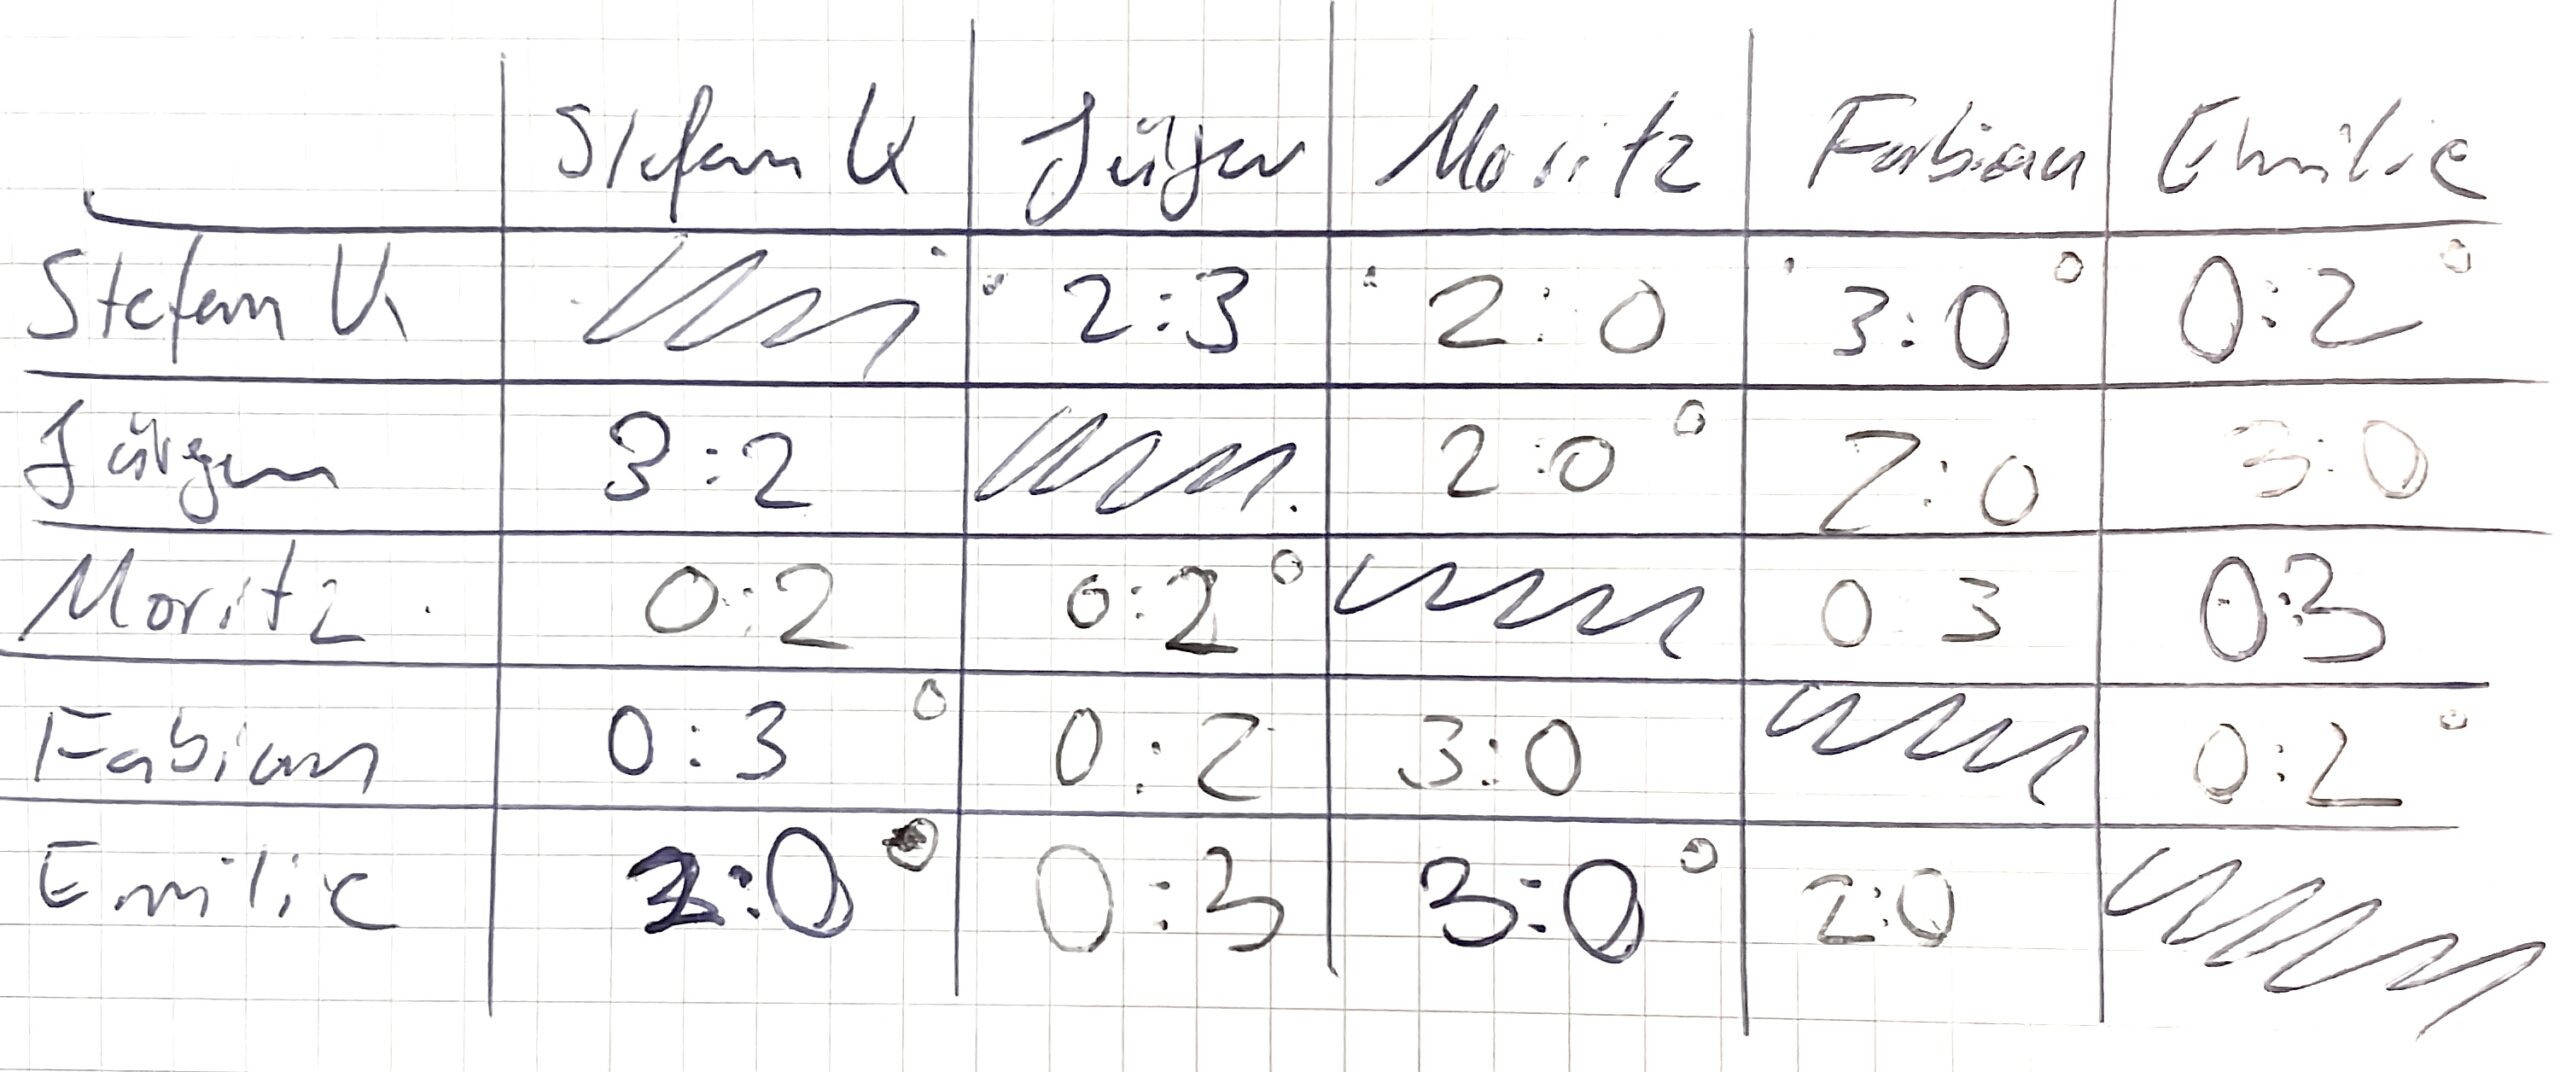 Stefan K Jürgen Moritz Fabian Emilie
Stefan K 2:3 2:0 3:0° 0:2°
Jürgen 3:2 2:0° 2:0 3:0
Moritz 0:2 0:2° 0:3 0:3
Fabian 0:3° 0:2 3:0 0:2°
Emilie 2:0° 0:3 3:0° 2:0